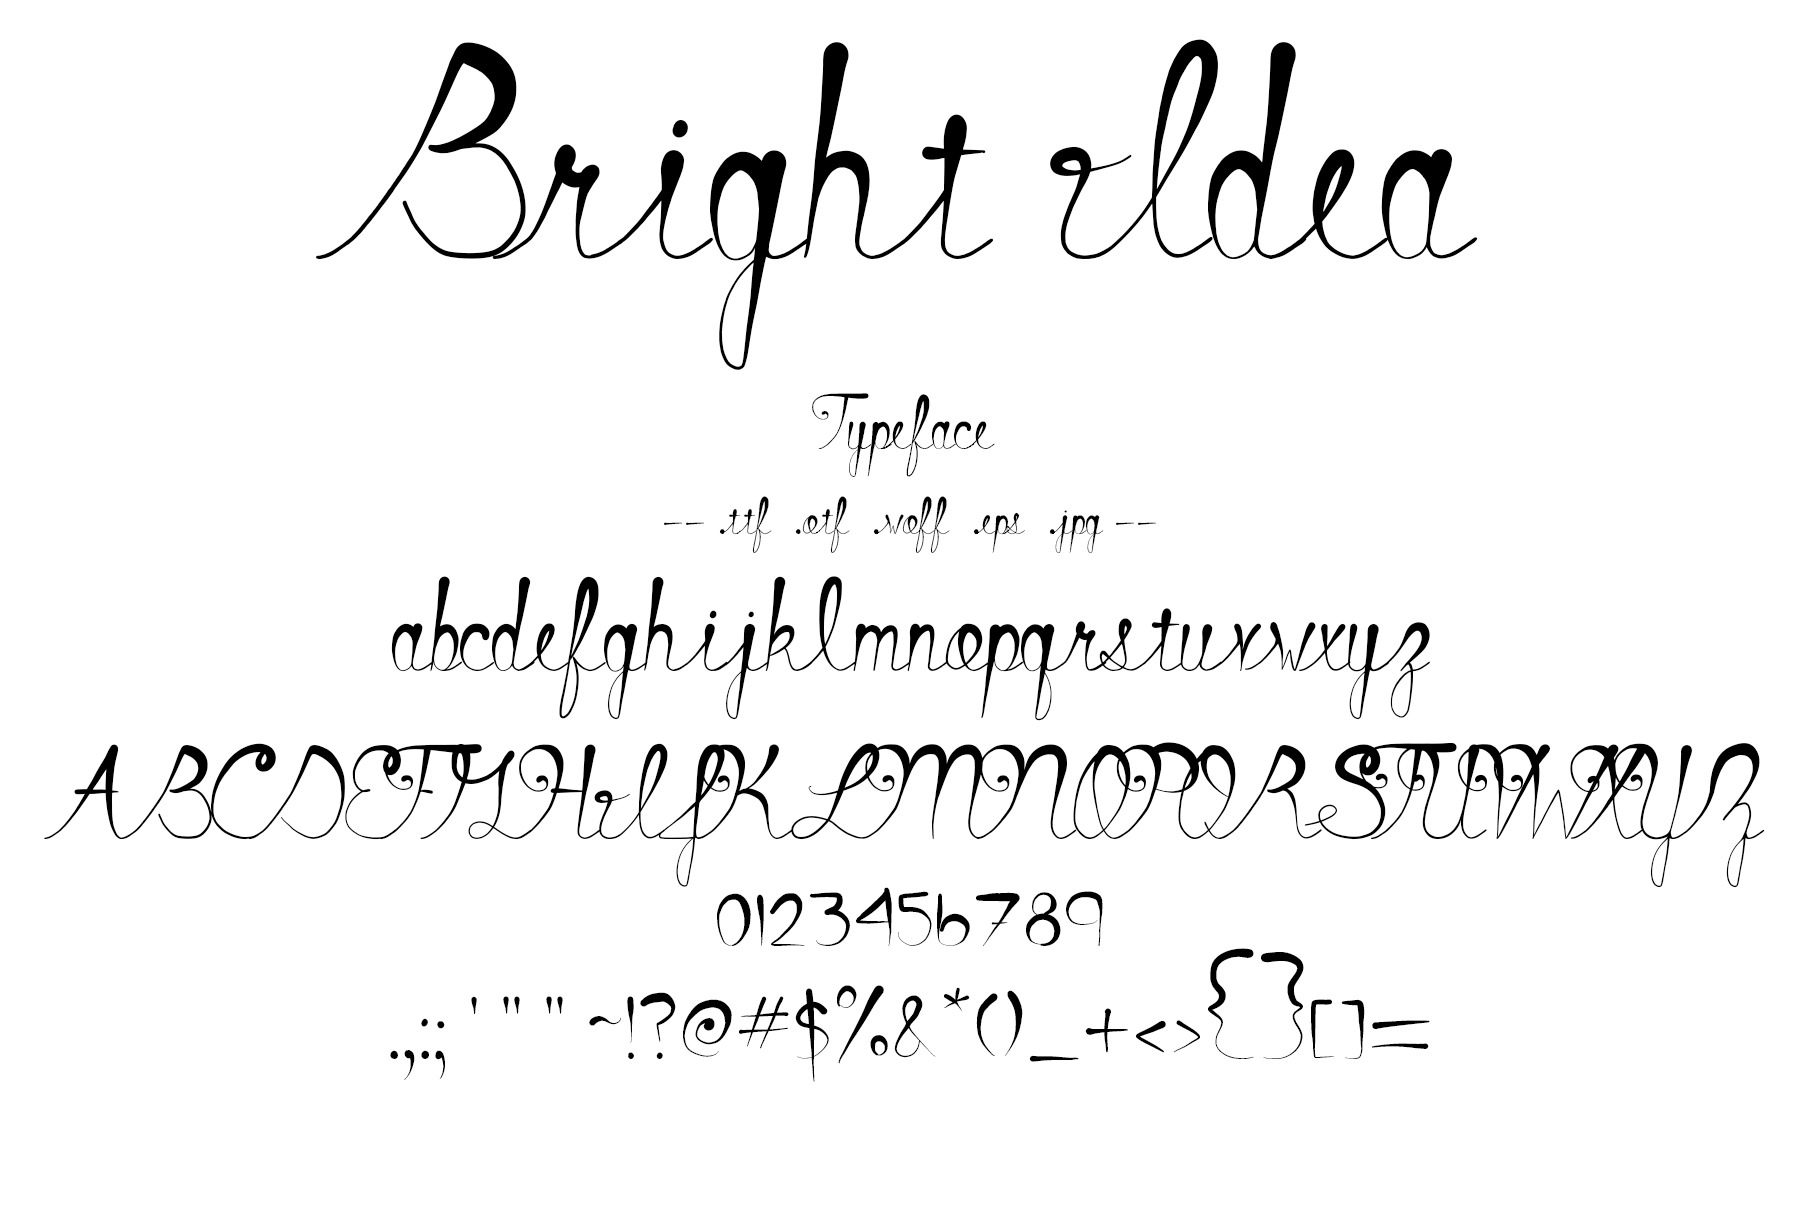 Bright Idea
Typeface
-- .ttf .otf .woff .eps .jpg --
abcdefghijklmnopqrstuvwxyz
ABCDEFGHIJKLMNOPQRSTUVWXYZ
0123456789
.,:; ' " " ~!?@#$%&*()_+<>{}[]=